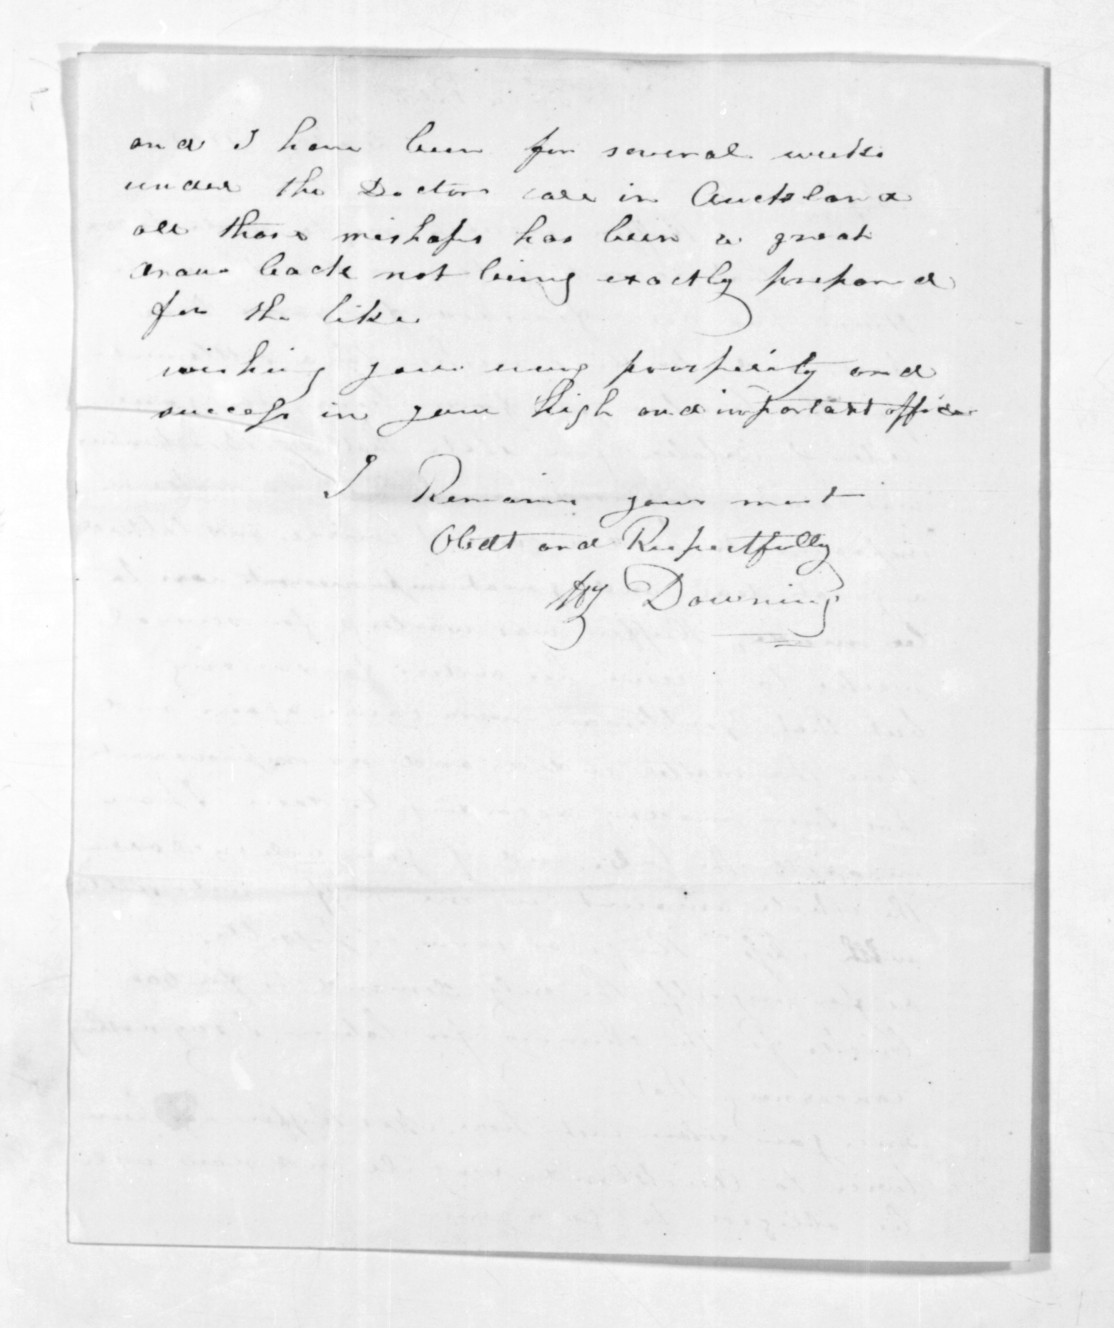 and I have been for several weeks
under the Doctors care in Auckland
all those mishaps has been a great
draw back not being exactly prepared
for the like
wishing you every prosperity and
success in your high and important office
I Remain your most
Obdt and Respectfully
Hy Downing